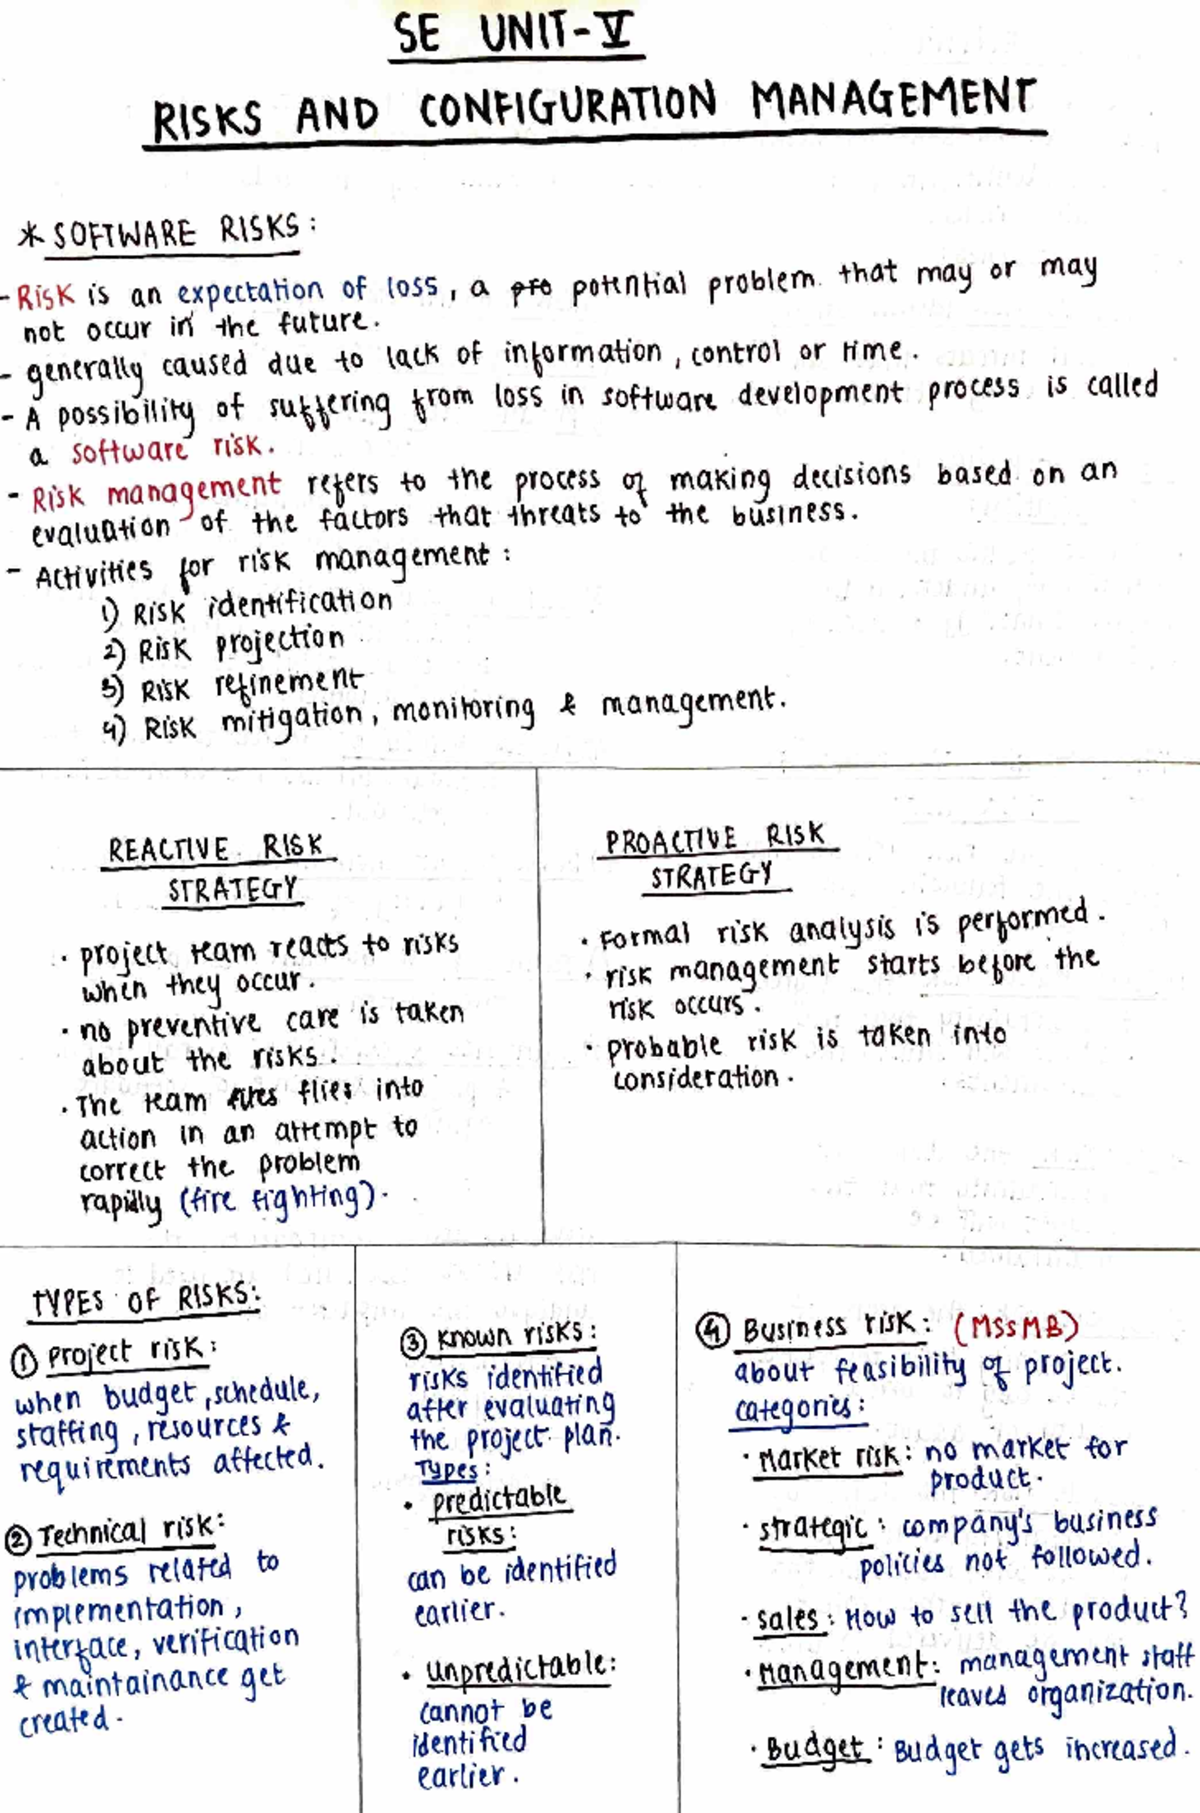 SE UNIT-V
RISKS AND CONFIGURATION MANAGEMENT
* SOFTWARE RISKS:
- Risk is an expectation of loss, a pro potential problem that may or may
not occur in the future.
- generally caused due to lack of information, control or time.
- A possibility of suffering from loss in software development process is called
a software risk.
- Risk management refers to the process of making decisions based on an
evaluation of the factors that threats to the business.
- Activities for risk management:
1) Risk identification
2) Risk projection
3) Risk refinement
4) Risk mitigation, monitoring & management.
REACTIVE RISK
STRATEGY
• project team reacts to risks
when they occur.
• no preventive care is taken
about the risks.
• The team flies into
action in an attempt to
correct the problem
rapidly (fire fighting).
PROACTIVE RISK
STRATEGY
• Formal risk analysis is performed.
• risk management starts before the
risk occurs.
• probable risk is taken into
consideration.
TYPES OF RISKS:
① Project risk:
when budget, schedule,
staffing, resources &
requirements affected.
② Technical risk:
problems related to
implementation,
interface, verification
& maintainance get
created.
③ Known risks:
risks identified
after evaluating
the project plan.
Types:
• Predictable
risks:
can be identified
earlier.
• Unpredictable:
cannot be
identified
earlier.
④ Business risk: (MSSMB)
about feasibility of project.
categories:
• Market risk: no market for
product.
• strategic: company's business
policies not followed.
• sales: How to sell the product?
• Management: management staff
leaves organization.
• Budget: Budget gets increased.